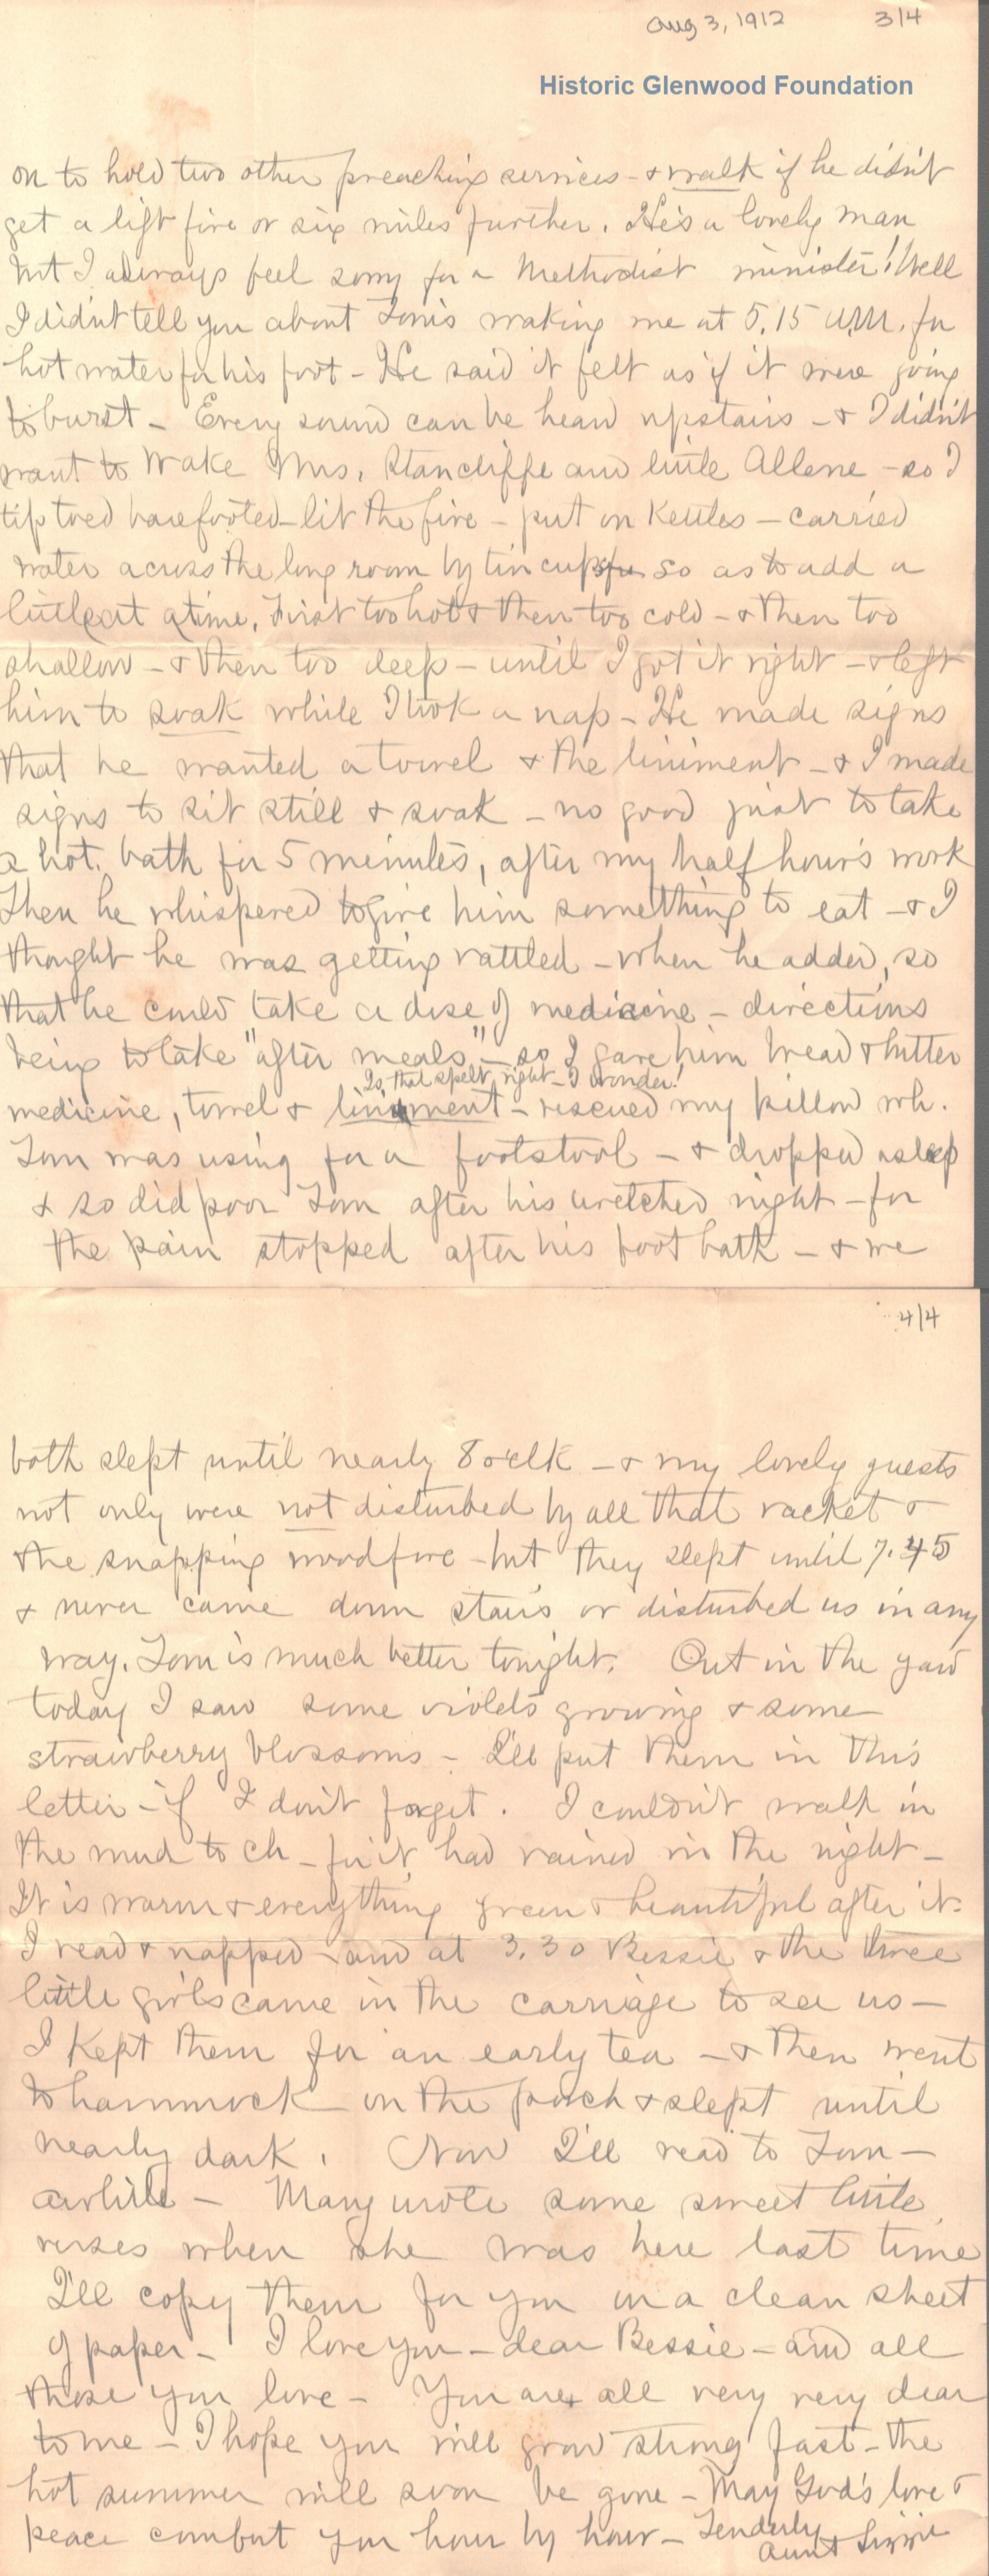 Aug 3, 1912 3/4
Historic Glenwood Foundation
on to hold two other preaching services - & walk if he didn't
get a lift five or six miles further. He's a lovely man
but I always feel sorry for a Methodist minister! Well
I didn't tell you about Tom's waking me at 5.15 A.M. for
hot water for his foot - He said it felt as if it were going
to burst - Every sound can be heard upstairs - & I didn't
want to wake Mrs. Stancliffe and little Allene - so I
tip toed barefooted - lit the fire - put on kettles - carried
water across the long room by tin cups so as to add a
little at a time. First too hot & then too cold - & then too
shallow - & then too deep - until I got it right - & left
him to soak while I took a nap - He made signs
that he wanted a towel & the liniment - & I made
signs to sit still & soak - no good just to take
a hot bath for 5 minutes, after my half hour's work
Then he whispered to give him something to eat - & I
thought he was getting rattled - when he added, so
that he could take a dose of medicine - directions
being to take "after meals" - so I gave him bread & butter
Is that spelt right - I wonder!
medicine, towel & liniment - rescued my pillow wh.
Tom was using for a footstool - & dropped asleep
& so did poor Tom after his wretched night - for
the pain stopped after his foot bath - & we
4/4
both slept until nearly 8 o'clk - & my lovely guests
not only were not disturbed by all that racket &
the snapping wood fire - but they slept until 7.45
& never came down stairs or disturbed us in any
way. Tom is much better tonight. Out in the yard
today I saw some violets growing & some
strawberry blossoms - I'll put them in this
letter - if I don't forget. I couldn't walk in
the mud to ch - for it had rained in the night -
It is warm & everything green & beautiful after it.
I read & napped - and at 3.30 Bessie & the three
little girls came in the carriage to see us -
I kept them for an early tea - & then went
to hammock on the porch & slept until
nearly dark. Now I'll read to Tom -
awhile - Mary wrote some sweet little
verses when she was here last time
I'll copy them for you on a clean sheet
of paper - I love you - dear Bessie - and all
those you love - You are all very very dear
to me - I hope you will grow strong fast - the
hot summer will soon be gone - May God's love &
peace comfort you hour by hour - Tenderly
Aunt Lizzie